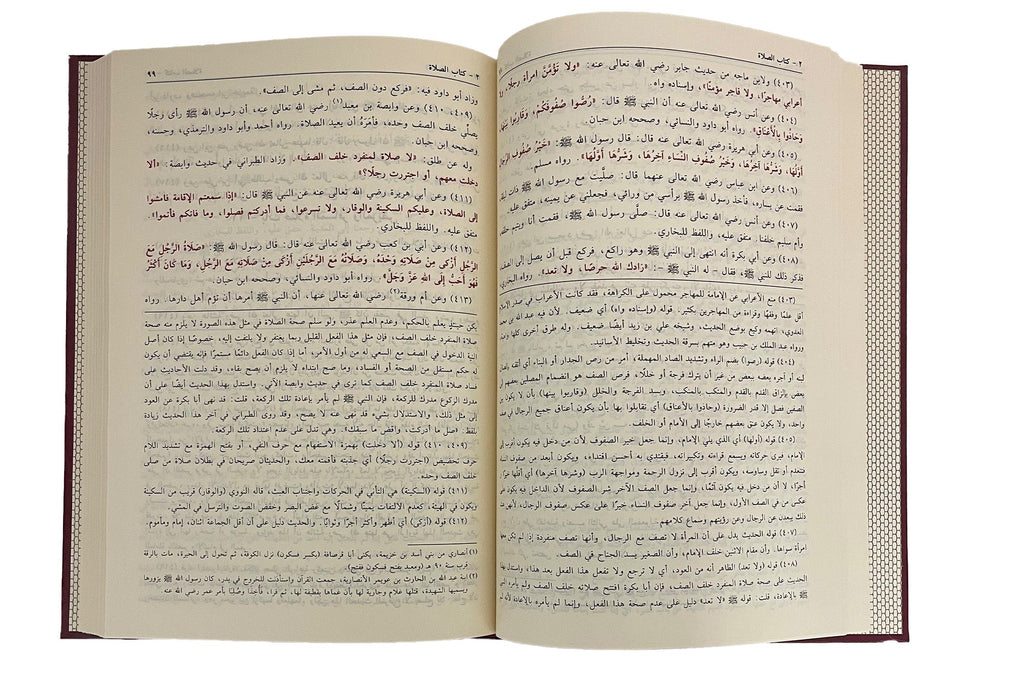 ٢ - كتاب الصلاة
(٤٠٣) ولابن ماجه من حديث جابر رضي الله تعالى عنه: «ولا تَؤُمَّنَّ امرأة رجلًا، ولا
أعرابي مهاجرًا، ولا فاجر مؤمنًا»، وإسناده واه.
(٤٠٤) وعن أنس رضي الله تعالى عنه أن النبي ﷺ قال: «رُصُّوا صُفُوفَكُمْ، وَقَارِبُوا بَيْنَهَا،
وَحَاذُوا بِالأَعْنَاقِ». رواه أبو داود والنسائي، وصححه ابن حبان.
(٤٠٥) وعن أبي هريرة رضي الله تعالى عنه قال: قال رسول الله ﷺ: «خَيْرُ صُفُوفِ الرِّجَالِ
أَوَّلُهَا، وَشَرُّهَا آخِرُهَا، وَخَيْرُ صُفُوفِ النِّسَاءِ آخِرُهَا، وَشَرُّهَا أَوَّلُهَا». رواه مسلم.
(٤٠٦) وعن ابن عباس رضي الله تعالى عنهما قال: صلَّيت مع رسول الله ﷺ ذات ليلة،
فقمت عن يساره، فأخذ رسول الله ﷺ برأسي من ورائي، فجعلني عن يمينه. متفق عليه.
(٤٠٧) وعن أنس رضي الله تعالى عنه قال: صلَّى رسول الله ﷺ، فقمت أنا ويتيم خلفه،
وأم سليم خلفنا. متفق عليه، واللفظ للبخاري.
(٤٠٨) وعن أبي بكرة أنه انتهى إلى النبي ﷺ وهو راكع، فركع قبل أن يصل إلى الصف،
فذكر ذلك للنبي ﷺ، فقال - له النبي ﷺ -: «زادك الله حرصًا، ولا تعد». رواه البخاري،
(٤٠٣) منع الأعرابي عن الإمامة للمهاجر محمول على الكراهة، فقد كانت الأعراب في صدر الإسلام
أقل علمًا وفقهًا وقراءة من المهاجرين بكثير. قوله (وإسناده واه) أي ضعيف. لأن فيه عبد الله بن محمد
العدوي، اتهمه وكيع بوضع الحديث، وشيخه علي بن زيد أيضًا ضعيف. وله طرق أخرى كلها
ورواه عبد الملك بن حبيب وهو متهم بسرقة الحديث وتخليط الأسانيد.
(٤٠٤) قوله (رصوا) بضم الراء وتشديد الصاد المهملة، أمر من رص الجدار أو البناء أي ألف
لبنه أو آجره بعضه ببعض من غير أن يترك فرجة أو خللًا، فرص الصف هو انضمام المصلين بعضهم إلى
بعض بإلزاق القدم بالقدم والمنكب بالمنكب، وبسد الفرجة والخلل (وقاربوا بينها) بأن لا يكون بين
الصفين فصل إلا قدر الضرورة (وحاذوا بالأعناق) أي تقابلوا بها بأن يكون أعناق جميع الرجال في صف
واحد، ولا يكون عنق بعضهم خارجًا إلى الأمام أو الخلف.
(٤٠٥) قوله (أولها) أي الذي يلي الإمام، وإنما جعل خير الصفوف لأن من دخل فيه يكون أقرب إلى
الإمام، فيرى حركاته ويسمع قراءته وتكبيراته، فيقتدي به أحسن اقتداء، ويكون أبعد من صفوف النساء
فتنعدم أو تقل وساوسه، ويكون أقرب إلى نزول الرحمة ومواجهة الرب (وشرها آخرها) أي أقلها خيرًا
أجرًا، لا أن من دخل فيه يكون آثمًا، وإنما جعل الصف الآخر شر الصفوف لأن الداخل فيه يكون
عكس من في الصف الأول، وإنما جعل آخر صفوف النساء خيرًا على عكس صفوف الرجال، لأنهن
ذلك يبعدن عن الرجال وعن رؤيتهم وسماع كلامهم.
(٤٠٧) الحديث يدل على أن المرأة لا تصف مع الرجال، وأنها تصف منفردة إذا لم تكن معها
امرأة سواها. وأن مقام الاثنين خلف الإمام، وأن الصغير يسد الجناح في الصف.
(٤٠٨) قوله (ولا تعد) الظاهر أنه من العود، أي لا ترجع ولا تفعل هذا الفعل بعد هذا، واستدل بهذا
الحديث على صحة صلاة المنفرد خلف الصف، فإن أبا بكرة افتتح صلاته خلف الصف ولم يأمره النبي
ﷺ بالإعادة، قلت: قوله ﷺ «لا تعد» دليل على عدم صحة هذا الفعل، وإنما لم يأمره بالإعادة لأنه لم
٢ - كتاب الصلاة ٩٩
وزاد أبو داود فيه: «فركع دون الصف، ثم مشى إلى الصف».
(٤٠٩) وعن وابصة بن معبد(١) رضي الله تعالى عنه، أن رسول الله ﷺ رأى رجلًا
يصلِّي خلف الصف وحده، فأمَرَهُ أن يعيد الصلاة. رواه أحمد وأبو داود والترمذي، وحسنه،
وصححه ابن حبان.
(٤١٠) وله عن طلق: «لا صلاة لمنفرد خلف الصف». وزاد الطبراني في حديث وابصة: «ألا
دخلت معهم، أو اجتررت رجلًا؟»
(٤١١) وعن أبي هريرة رضي الله تعالى عنه عن النبي ﷺ قال: «إذا سمعتم الإقامة فامشوا
إلى الصلاة، وعليكم السكينة والوقار، ولا تسرعوا، فما أدركتم فصلوا، وما فاتكم فأتموا».
متفق عليه، واللفظ للبخاري.
(٤١٢) وعن أبيّ بن كعب رضي الله تعالى عنه قال: قال رسول الله ﷺ: «صَلَاةُ الرَّجُلِ مَعَ
الرَّجُلِ أَزْكَى مِنْ صَلَاتِهِ وَحْدَهُ، وَصَلَاتُهُ مَعَ الرَّجُلَيْنِ أَزْكَى مِنْ صَلَاتِهِ مَعَ الرَّجُلِ، وَمَا كَانَ أَكْثَرَ
فَهُوَ أَحَبُّ إِلَى اللهِ عَزَّ وَجَلَّ». رواه أبو داود والنسائي، وصححه ابن حبان.
(٤١٣) وعن أم ورقة(٢) رضي الله تعالى عنها، أن النبي ﷺ أمرها أن تؤم أهل دارها. رواه
يكن حينئذٍ يعلم بالحكم، وعدم العلم عذر، ولو سلم صحة الصلاة في مثل هذه الصورة لا يلزم منه صحة
صلاة المنفرد خلف الصف، فإن مثل هذا الفعل القليل ربما يغتفر ولا يلتفت إليه، خصوصًا إذا كان أصل
النية الدخول في الصف مع السعي له من أول الأمر، أما إذا كان الفعل دائمًا مستمرًا فإنه يقتضي أن يكون
له حكم مستقل من الصحة أو الفساد، وما صح ابتداء لا يلزم أن يصح بقاء، وقد دلت الأحاديث على
فساد صلاة المنفرد خلف الصف كما نرى في حديث وابصة الآتي. واستدل بهذا الحديث أيضًا على أن
مدرك الركوع مدرك للركعة، فإن النبي ﷺ لم يأمره بإعادة تلك الركعة، قلت: قد نهى أبا بكرة عن العود
إلى مثل ذلك، والاستدلال بشيء قد نهى عنه لا يصح، وقد روى الطبراني في آخر هذا الحديث زيادة
بلفظ «صل ما أدركت، واقض ما سبقك». وهي تدل على عدم اعتداد تلك الركعة.
(٤٠٩، ٤١٠) قوله (ألا دخلت) بهمزة الاستفهام مع حرف النفي، أو بفتح الهمزة مع تشديد اللام
حرف تحضيض (اجتررت رجلًا) أي جذبته فأقمته معك، والحديثان صريحان في بطلان صلاة من صلى
خلف الصف وحده.
(٤١١) قوله (السكينة) هي التأني في الحركات واجتناب العبث، قاله النووي (والوقار) قريب من السكينة
ويكون في الهيئة، كعدم الالتفات يمينًا وشمالًا مع غض البصر وخفض الصوت والترسل في المشي.
(٤١٢) قوله (أزكى) أي أطهر وأكثر أجرًا وثوابًا. والحديث دليل على أن أقل الجماعة اثنان، إمام ومأموم.
(١) أنصاري من بني أسد بن خزيمة، يكنى أبا قرصافة (بكسر فسكون) نزل الكوفة، ثم تحول إلى الحيرة، مات بالرقة
قرب سنة ٩٠ هـ (ومعبد بفتح فسكون ففتح).
(٢) ابنة عبد الله بن الحارث بن عويمر الأنصارية، جمعت القرآن واستأذنت للخروج في بدر، كان رسول الله ﷺ يزورها
ويسميها الشهيدة، قتلها غلام وجارية لها بأن غمياها بقطيفة لها، ثم فرا، فأخذا وصُلبا بأمر عمر رضي الله عنه.